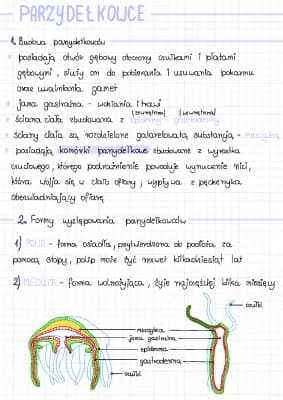 PARZYDEŁKOWCE
1. Budowa parzydełkowców
posiadają otwór gębowy otoczony czułkami i płatami
gębowymi, służy on do pobierania i usuwania pokarmu
oraz uwalniania gamet
jama gastralna - wchłania i trawi
(zewnętrzna) (wewnętrzna)
ściana ciała zbudowana z epidermy i gastrodermy
ściany ciała są rozdzielone galaretowatą substancją - mezogleą
posiadają komórki parzydełkowe zbudowane z wyrostka
czuciowego, którego podrażnienie powoduje wyrzucenie nici,
która wbija się w ciało ofiary, wypływa z pęcherzyka
obezwładniający ofiarę
2. Formy występowania parzydełkowców
1) POLIP - forma osiadła, przytwierdzona do podłoża za
pomocą stopy, polip może żyć nawet kilkadziesiąt lat
2) MEDUZA - forma wolnożyjąca, żyje najczęściej kilka miesięcy
czułki
mezoglea
jama gastralna
epiderma
gastroderma
czułki